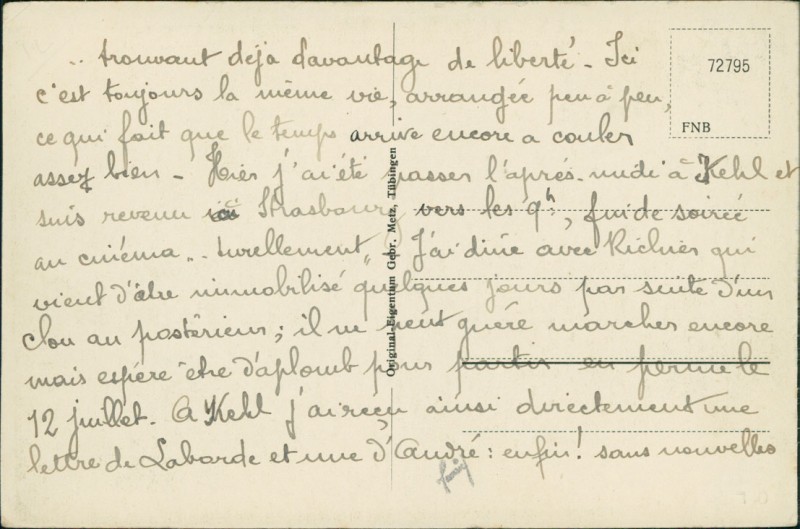 .. trouvant déja davantage de liberté - Ici
72795
c'est toujours la même vie, arrangée peu à peu,
FNB
ce qui fait que le temps arrive encore a couler
assez bien - Hier j'ai été passer l'après-midi à Kehl et
suis revenu ici Strasbourg vers les 9h, fin de soirée
au cinéma ".. turellement" - J'ai diné avec Richier qui
vient d'être immobilisé quelques jours par suite d'un
clou au postérieur ; il ne peut guère marcher encore
mais espère être d'aplomb pour partir en perme le
12 juillet. A Kehl j'ai reçu ainsi directement une
lettre de Laborde et une d'André : enfin ! sans nouvelles
Original-Eigentum Gebr. Metz, Tübingen